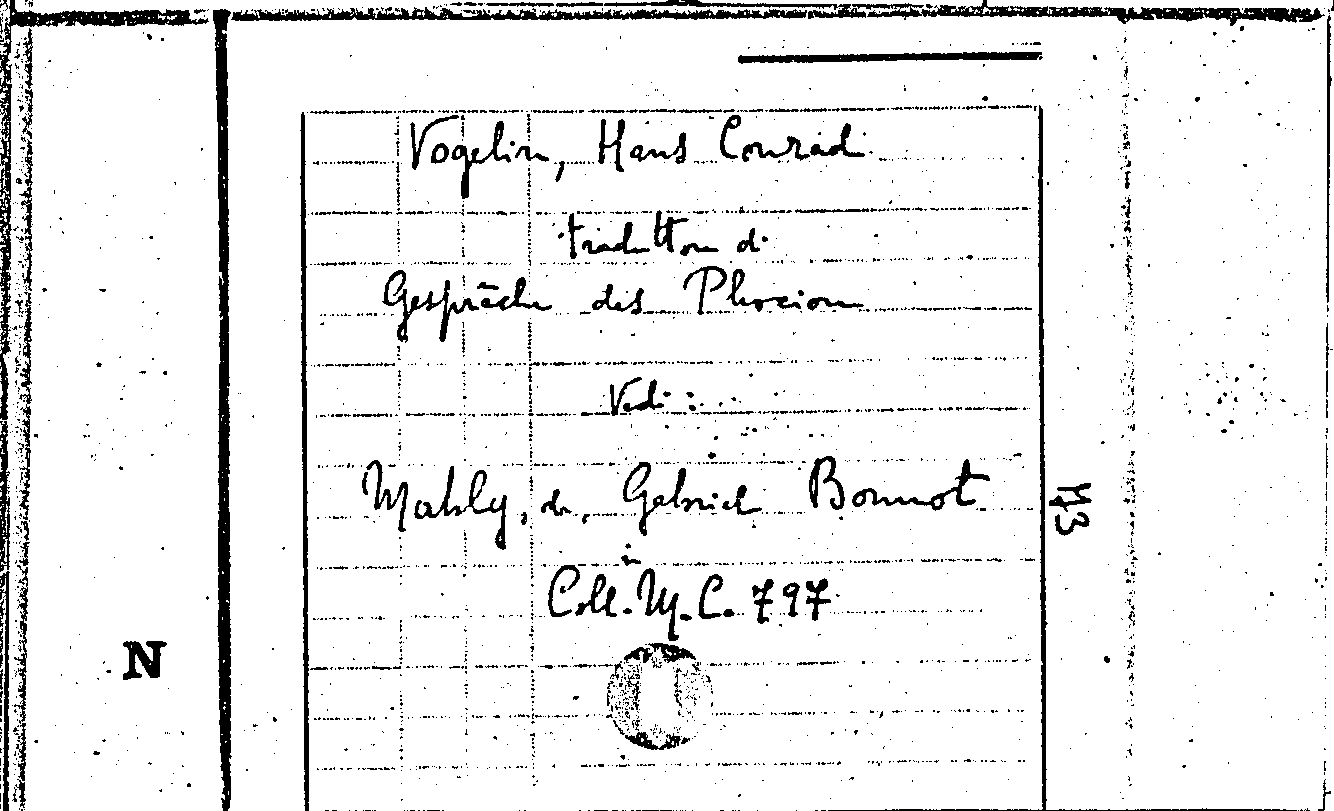 Vogelin, Hans Conrad
traduttore di
Gespräche des Phocion
Vedi:
Mably, de, Gabriel Bonnot
in
Coll. M. C. 797
N